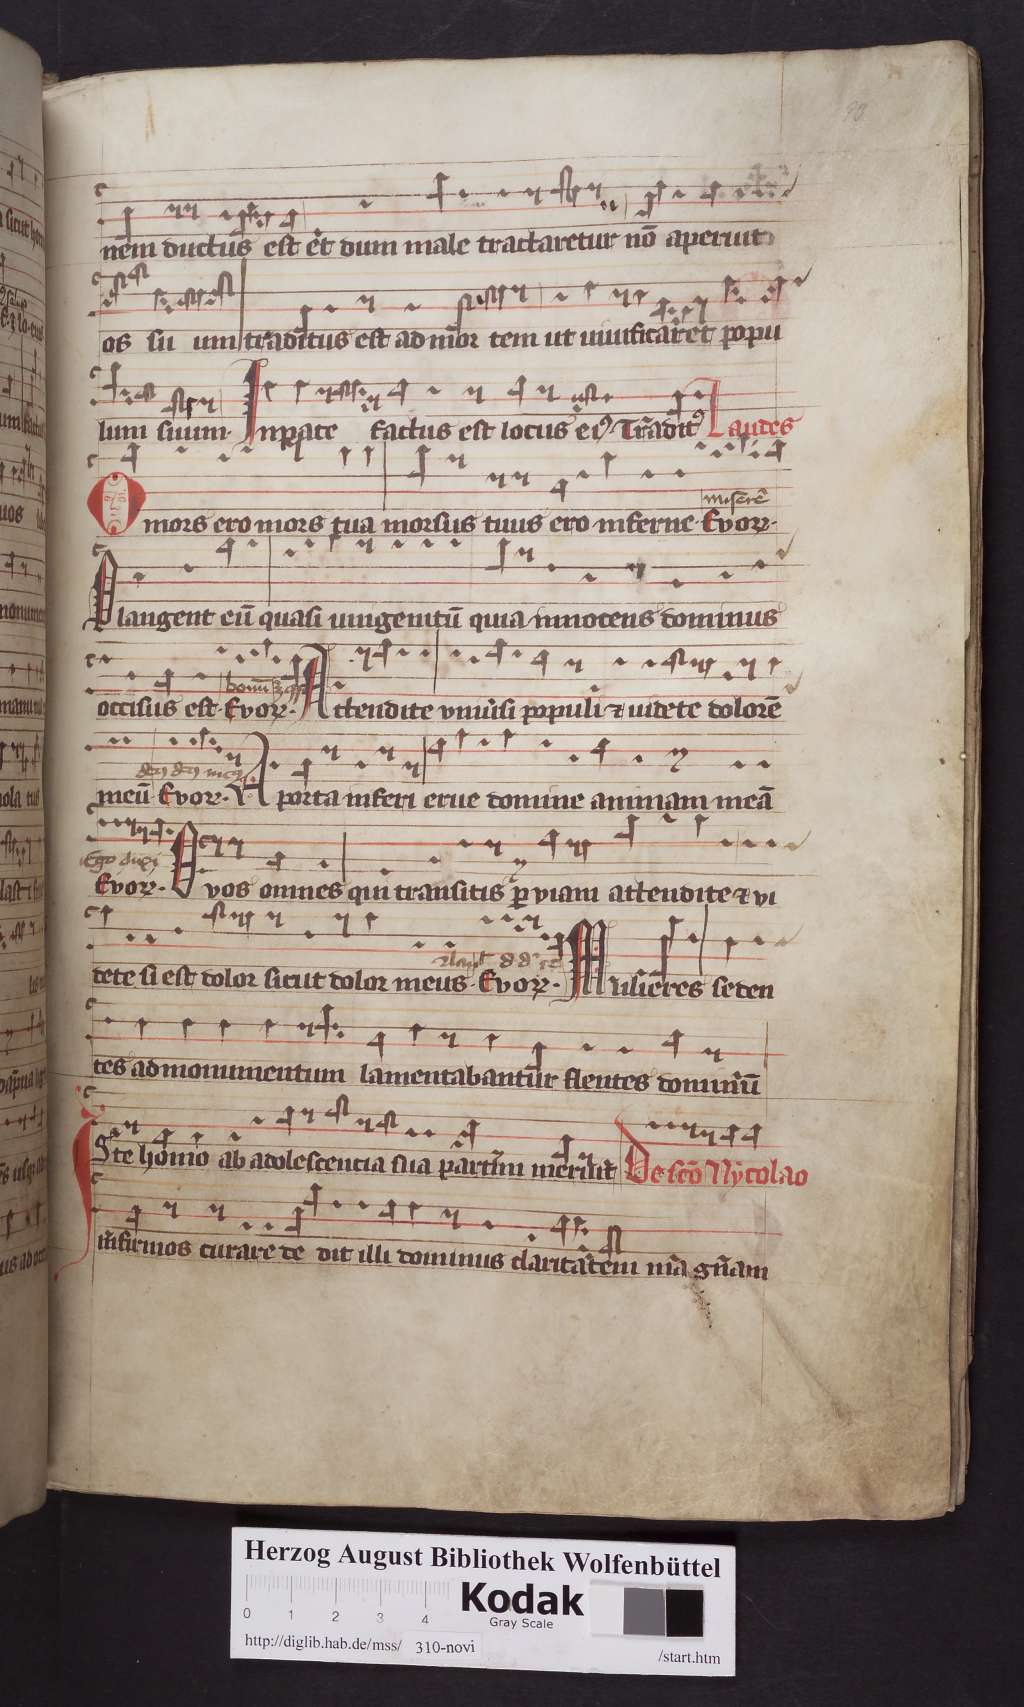 nem ductus est et dum male tractaretur nō aperuit
os su um traditus est ad mor tem ut uiuificaret popu
lum suum. Inpace Factus est locus eiꝰ. Tradit Laudes
O mors ero mors tua morsus tuus ero inferne. Evovꝝ. miserere
Plangent eū quasi unigenitū quia innocens dominus
occisus est. Evovꝝ. Attendite vniuersi populi ⁊ uidete dolorē
meū Evovꝝ. A porta inferi erue domine animam meā
Ego dixi
Evovꝝ. O vos omnes qui transitis ꝑ viam attendite ⁊ vi
dete si est dolor sicut dolor meus. Evovꝝ. Mulieres seden
tes ad monumentum lamentabantur flentes dominū
Iste homo ab adolescentia sua partim meruit De scō Nycolao
infirmos curare de dit illi dominus claritatem mā gnam
Herzog August Bibliothek Wolfenbüttel
0 1 2 3 4
Kodak
Gray Scale
http://diglib.hab.de/mss/ 310-novi /start.htm